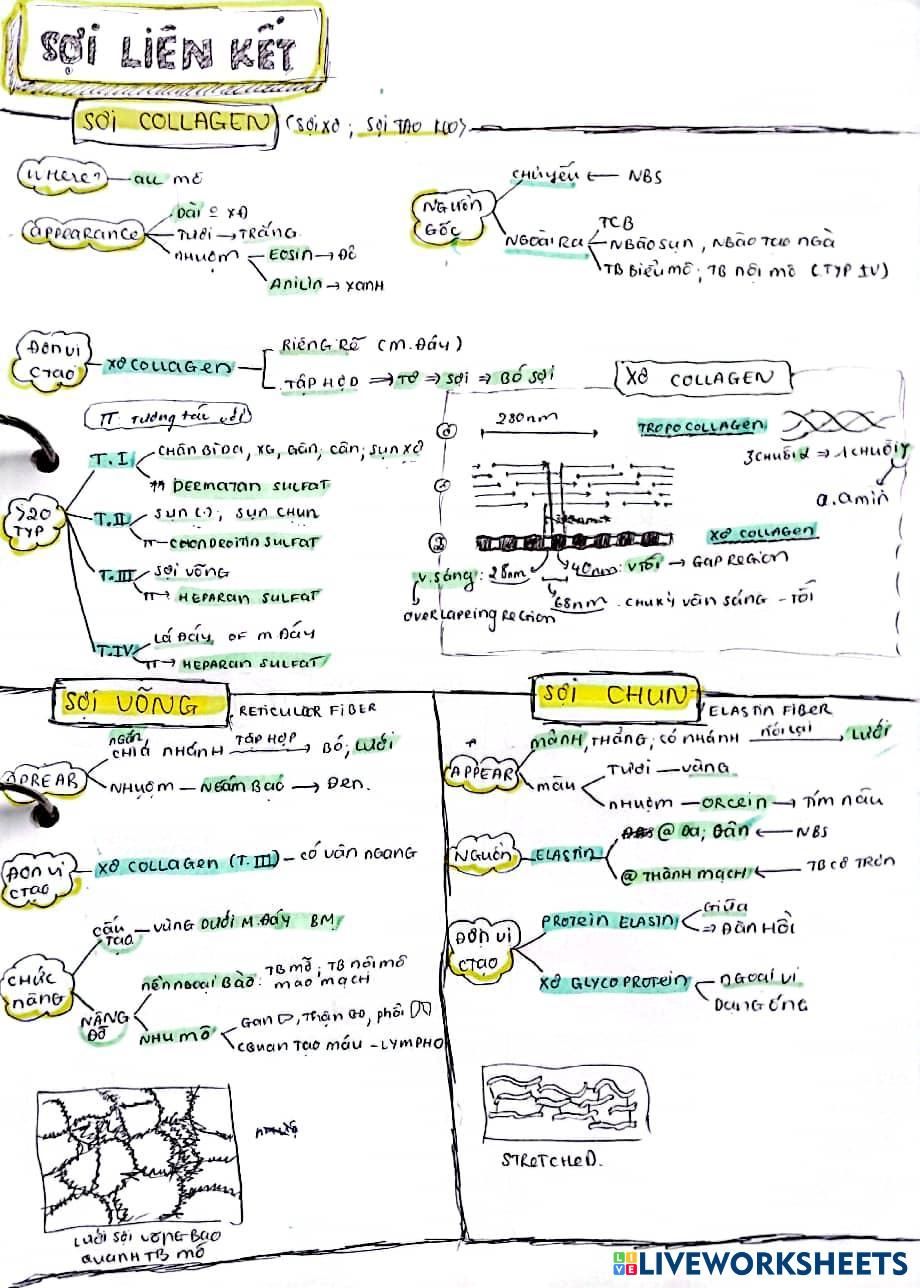 SỢI LIÊN KẾT
SỢI COLLAGEN (SỢI XƠ; SỢI TẠO KEO)
WHERE? all mô
APPEARANCE
DÀI
TƯƠI → TRẮNG
NHUỘM
EOSIN → ĐỎ
ANILIN → XANH
NGUỒN GỐC
CHỦ YẾU ← NBS
NGOÀI RA
TCB
NBÀO SỤN, NBÀO TẠO NGÀ
TB BIỂU MÔ; TB NỘI MÔ (TYP IV)
ĐƠN VỊ CTẠO
XƠ COLLAGEN
RIÊNG RẼ (M. ĐÁY)
TẬP HỢP ⇒ TƠ ⇒ SỢI ⇒ BÓ SỢI
Π: TƯƠNG TÁC VỚI
>20 TYP
T.I
CHÂN BÌ DA, XG, GÂN, CÂN; SỤN XƠ
DERMATAN SULFAT
T.II
SỤN (.); SỤN CHUN
Π CHONDROITIN SULFAT
T.III
SỢI VÕNG
Π → HEPARAN SULFAT
T.IV
LÁ ĐÁY OF M ĐÁY
Π → HEPARAN SULFAT
XƠ COLLAGEN
280nm
TROPOCOLLAGEN
3 CHUỖI α ⇒ 1 CHUỖI
a.amin
XƠ COLLAGEN
V.SÁNG: 28nm
40nm: V TỐI → GAP REGION
OVERLAPPING REGION
68nm. CHU KỲ VÂN SÁNG - TỐI
SỢI VÕNG
RETICULAR FIBER
APPEAR
NGẮN,
CHIA NHÁNH TẬP HỢP → BÓ; LƯỚI
NHUỘM — NGẤM BẠC → ĐEN.
ĐƠN VỊ CTẠO
XƠ COLLAGEN (T.III) - CÓ VÂN NGANG
CHỨC NĂNG
CẤU TẠO — VÙNG DƯỚI M.ĐÁY BM
NÂNG ĐỠ
NỀN NGOẠI BÀO: TB MỠ; TB NỘI MÔ MAO MẠCH
NHU MÔ
GAN, THẬN, PHỔI
CQUAN TẠO MÁU - LYMPHO
LƯỚI SỢI VÕNG BAO
QUANH TB MỠ
SỢI CHUN
ELASTIN FIBER
APPEAR
MẢNH, THẲNG; CÓ NHÁNH NỐI LẠI → LƯỚI
MÀU
TƯƠI — VÀNG
NHUỘM — ORCEIN → TÍM NÂU
NGUỒN
ELASTIN
@ DA; GÂN ← NBS
@ THÀNH MẠCH ← TB CƠ TRƠN
ĐƠN VỊ CTẠO
PROTEIN ELASIN
GIỮA
⇒ ĐÀN HỒI
XƠ GLYCOPROTEIN
NGOẠI VI
DẠNG ỐNG
STRETCHED.
LIVEWORKSHEETS